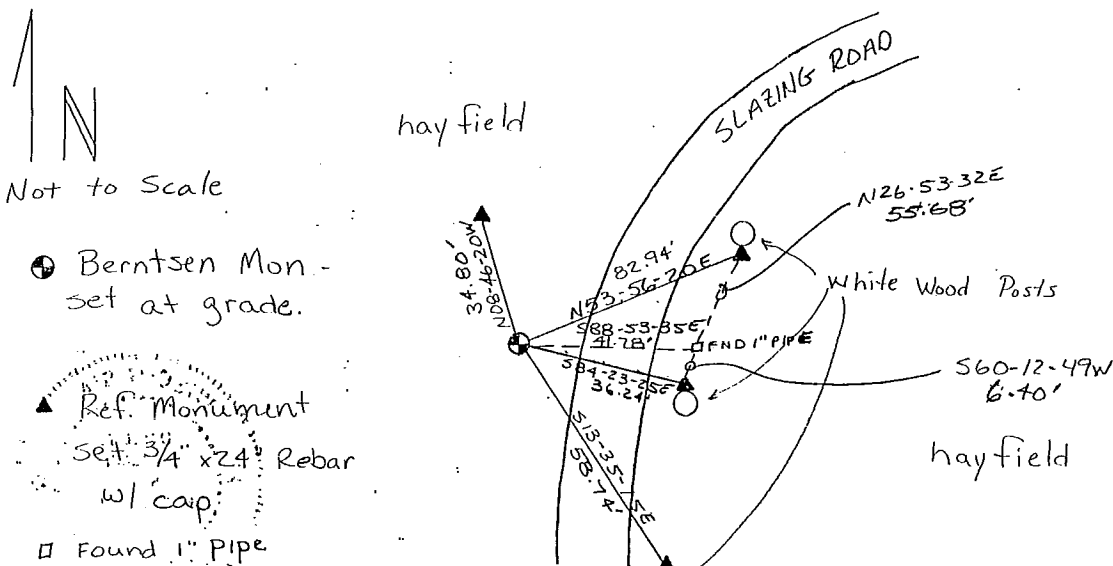 N
Not to Scale
Berntsen Mon.-
set at grade.
Ref. Monument
set 3/4" x 24" Rebar
w/ cap.
Found 1" Pipe
hayfield
SLAZING ROAD
34.80'
N08-46-20W
82.94'
N53-56-20E
S88-53-35E
41.78'
FND 1" PIPE
S84-23-25E
36.24'
58.74'
N26-53-32E
55.68'
White Wood Posts
S60-12-49W
6.40'
hayfield